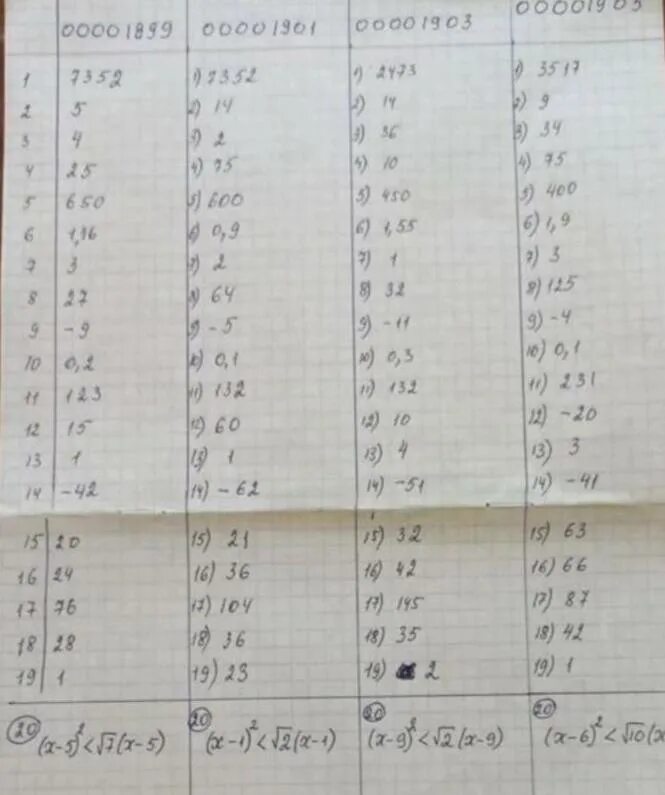 00001899 00001901 00001903 00001905
1 7352 1) 7352 1) 2473 1) 3517
2 5 2) 14 2) 14 2) 9
3 4 3) 2 3) 36 3) 34
4 25 4) 75 4) 10 4) 75
5 650 5) 600 5) 450 5) 400
6 1,16 6) 0,9 6) 1,55 6) 1,9
7 3 7) 2 7) 1 7) 3
8 27 8) 64 8) 32 8) 125
9 -9 9) -5 9) -11 9) -4
10 0,2 10) 0,1 10) 0,3 10) 0,1
11 123 11) 132 11) 132 11) 231
12 15 12) 60 12) 10 12) -20
13 1 13) 1 13) 4 13) 3
14 -42 14) -62 14) -51 14) -41
15 20 15) 21 15) 32 15) 63
16 24 16) 36 16) 42 16) 66
17 76 17) 104 17) 145 17) 87
18 28 18) 36 18) 35 18) 42
19 1 19) 23 19) 2 19) 1
20 (x-5)² < √7(x-5) 20 (x-1)² < √2(x-1) 20 (x-9)² < √2(x-9) 20 (x-6)² < √10(x